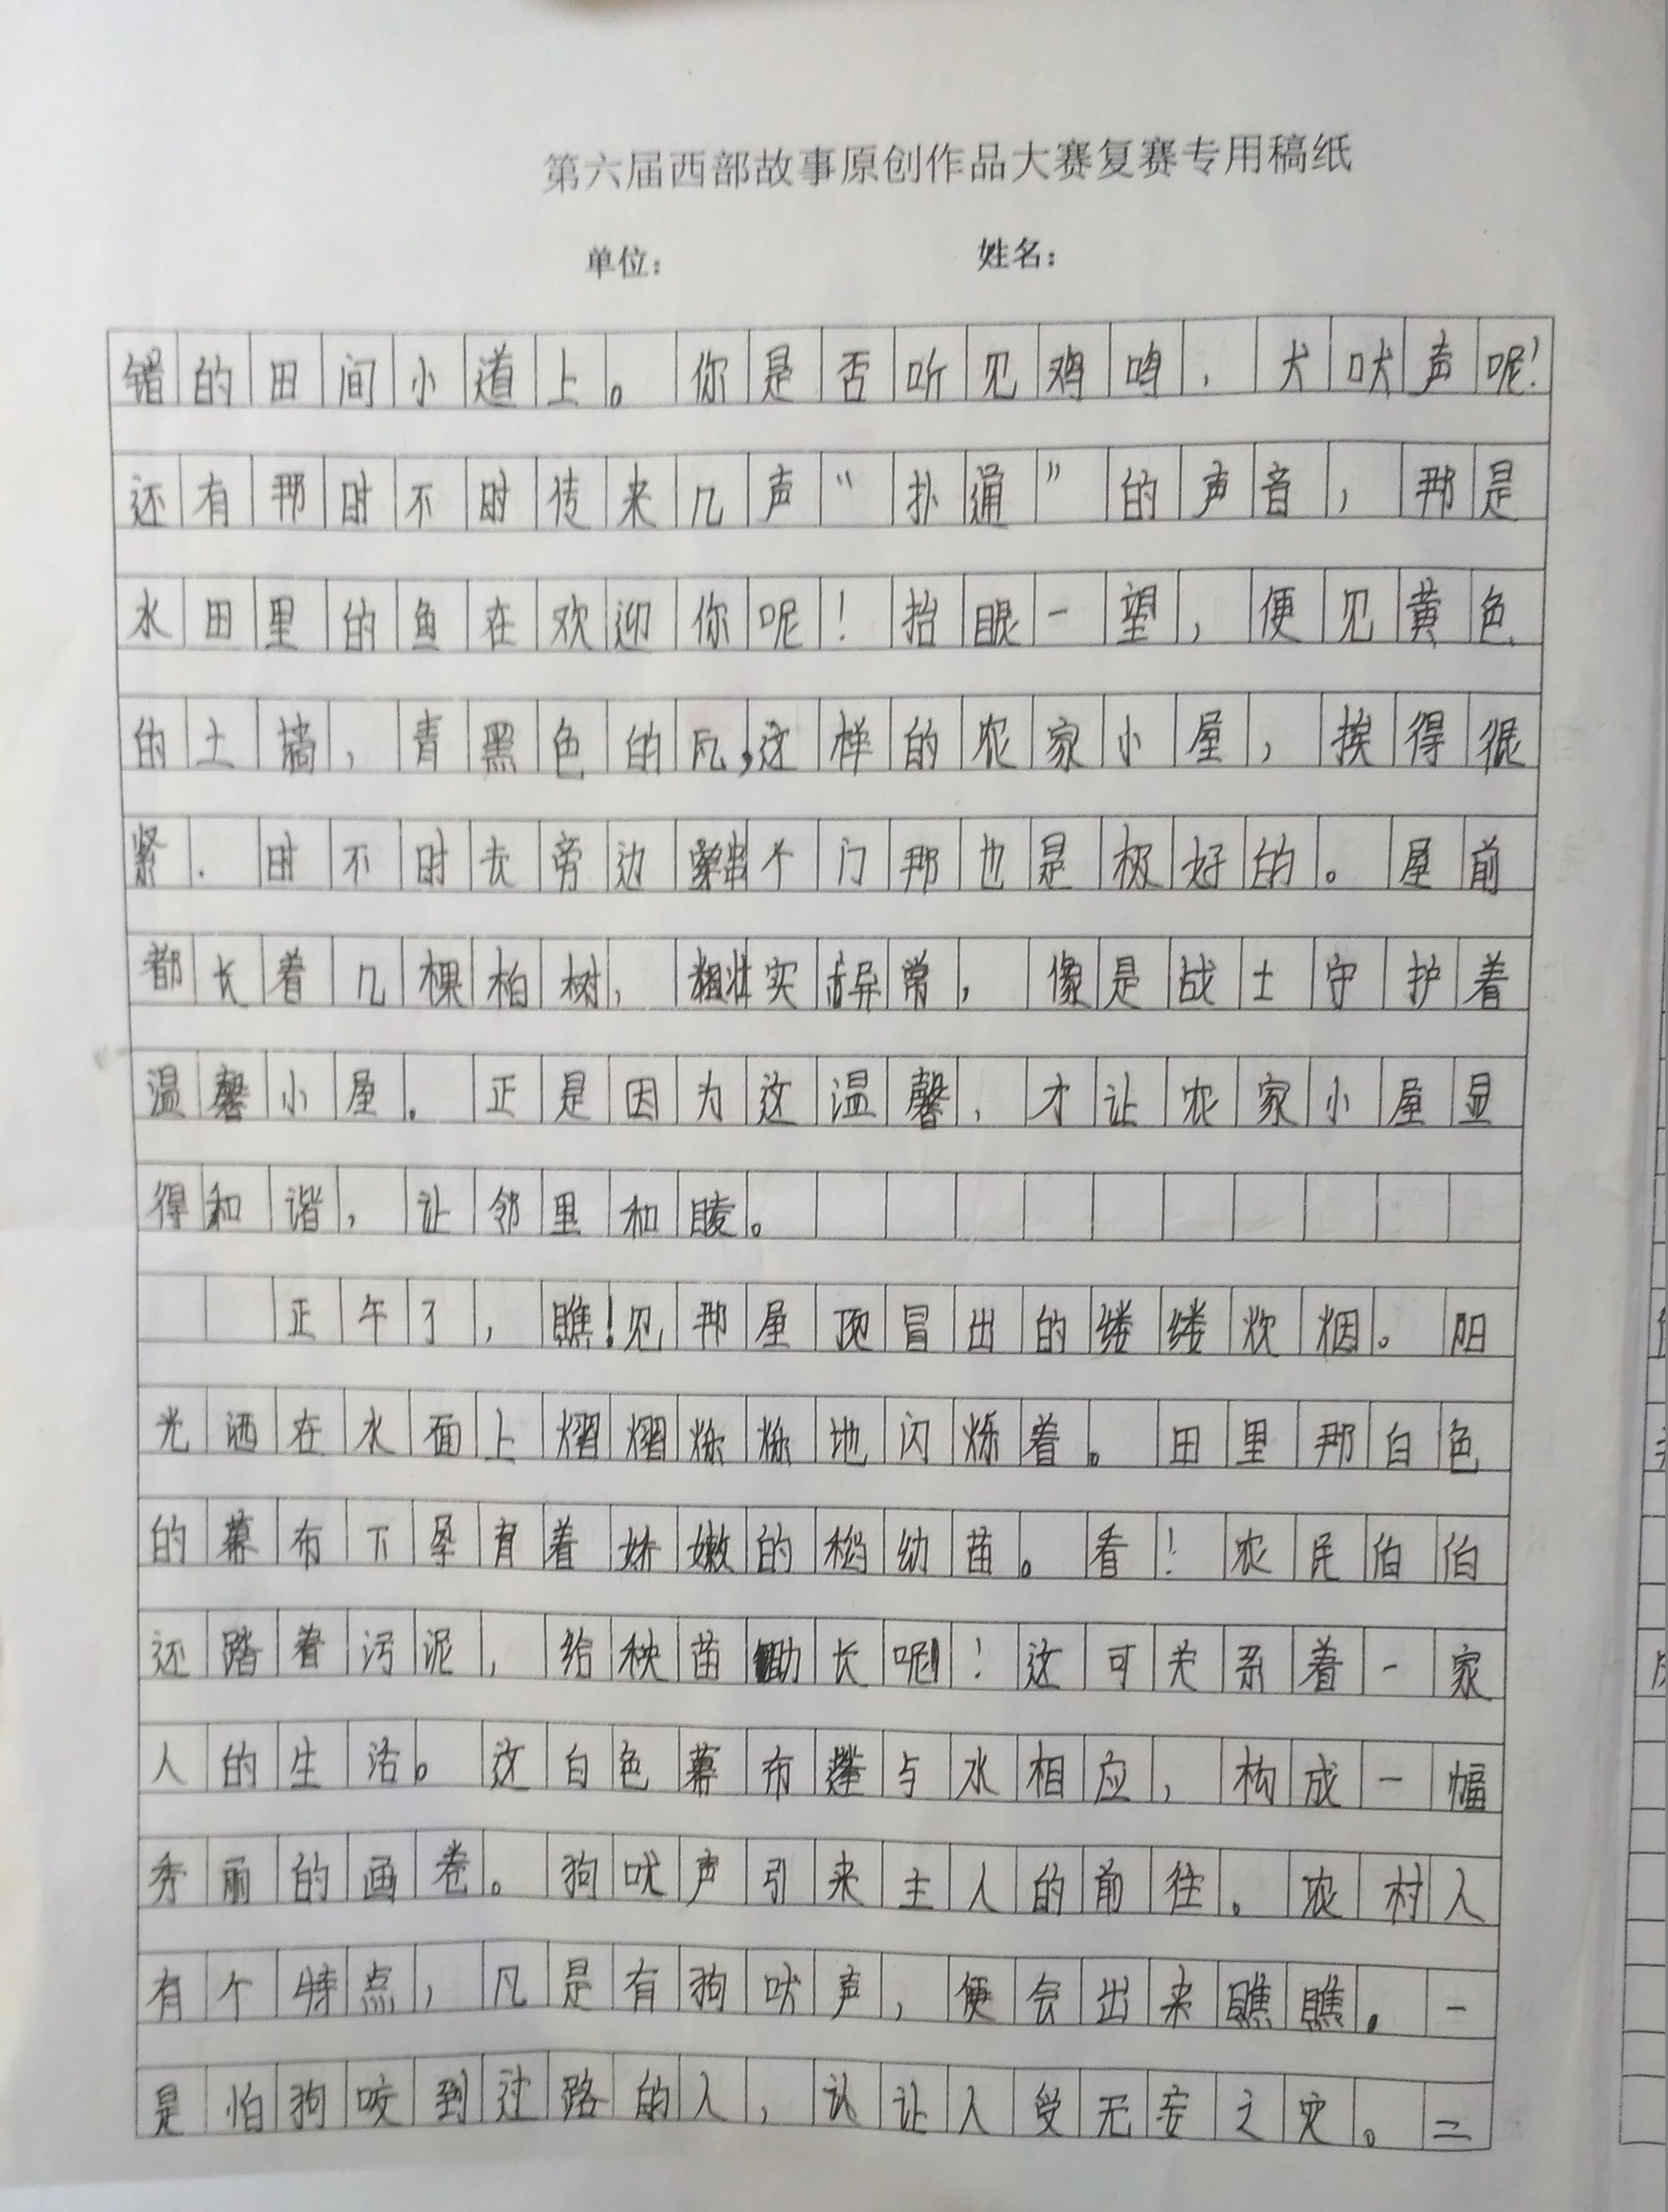 第六届西部故事原创作品大赛复赛专用稿纸
单位: 姓名:
错的田间小道上。你是否听见鸡鸣,犬吠声呢!
还有那时不时传来几声“扑通”的声音,那是
水田里的鱼在欢迎你呢!抬眼一望,便见黄色
的土墙,青黑色的瓦,这样的农家小屋,挨得很
紧.时不时去旁边串个门那也是极好的。屋前
都长着几棵柏树,粗壮实异常,像是战士守护着
温馨小屋。正是因为这温馨,才让农家小屋显
得和谐,让邻里和睦。
正午了,瞧!见那屋顶冒出的缕缕炊烟。阳
光洒在水面上熠熠烁烁地闪烁着。田里那白色
的幕布下孕育着娇嫩的稻幼苗。看!农民伯伯
还踏着污泥,给秧苗助长呢!这可关系着一家
人的生活。这白色幕布与水相应,构成一幅
秀丽的画卷。狗吠声引来主人的前往。农村人
有个特点,凡是有狗吠声,便会出来瞧瞧。一
是怕狗咬到过路的人,让人受无妄之灾。二